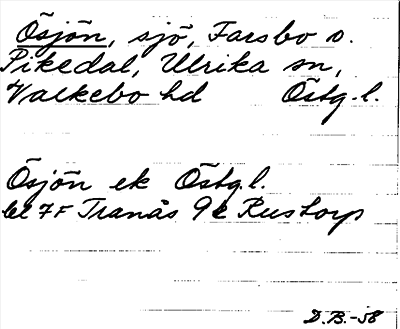 Ösjön, sjö, Farsbo o.
Pikedal, Ulrika sn,
Valkebo hd Östg.l.
Ösjön ek Östg.l.
bl 7F Tranås 9e Rustorp
D.B.-58